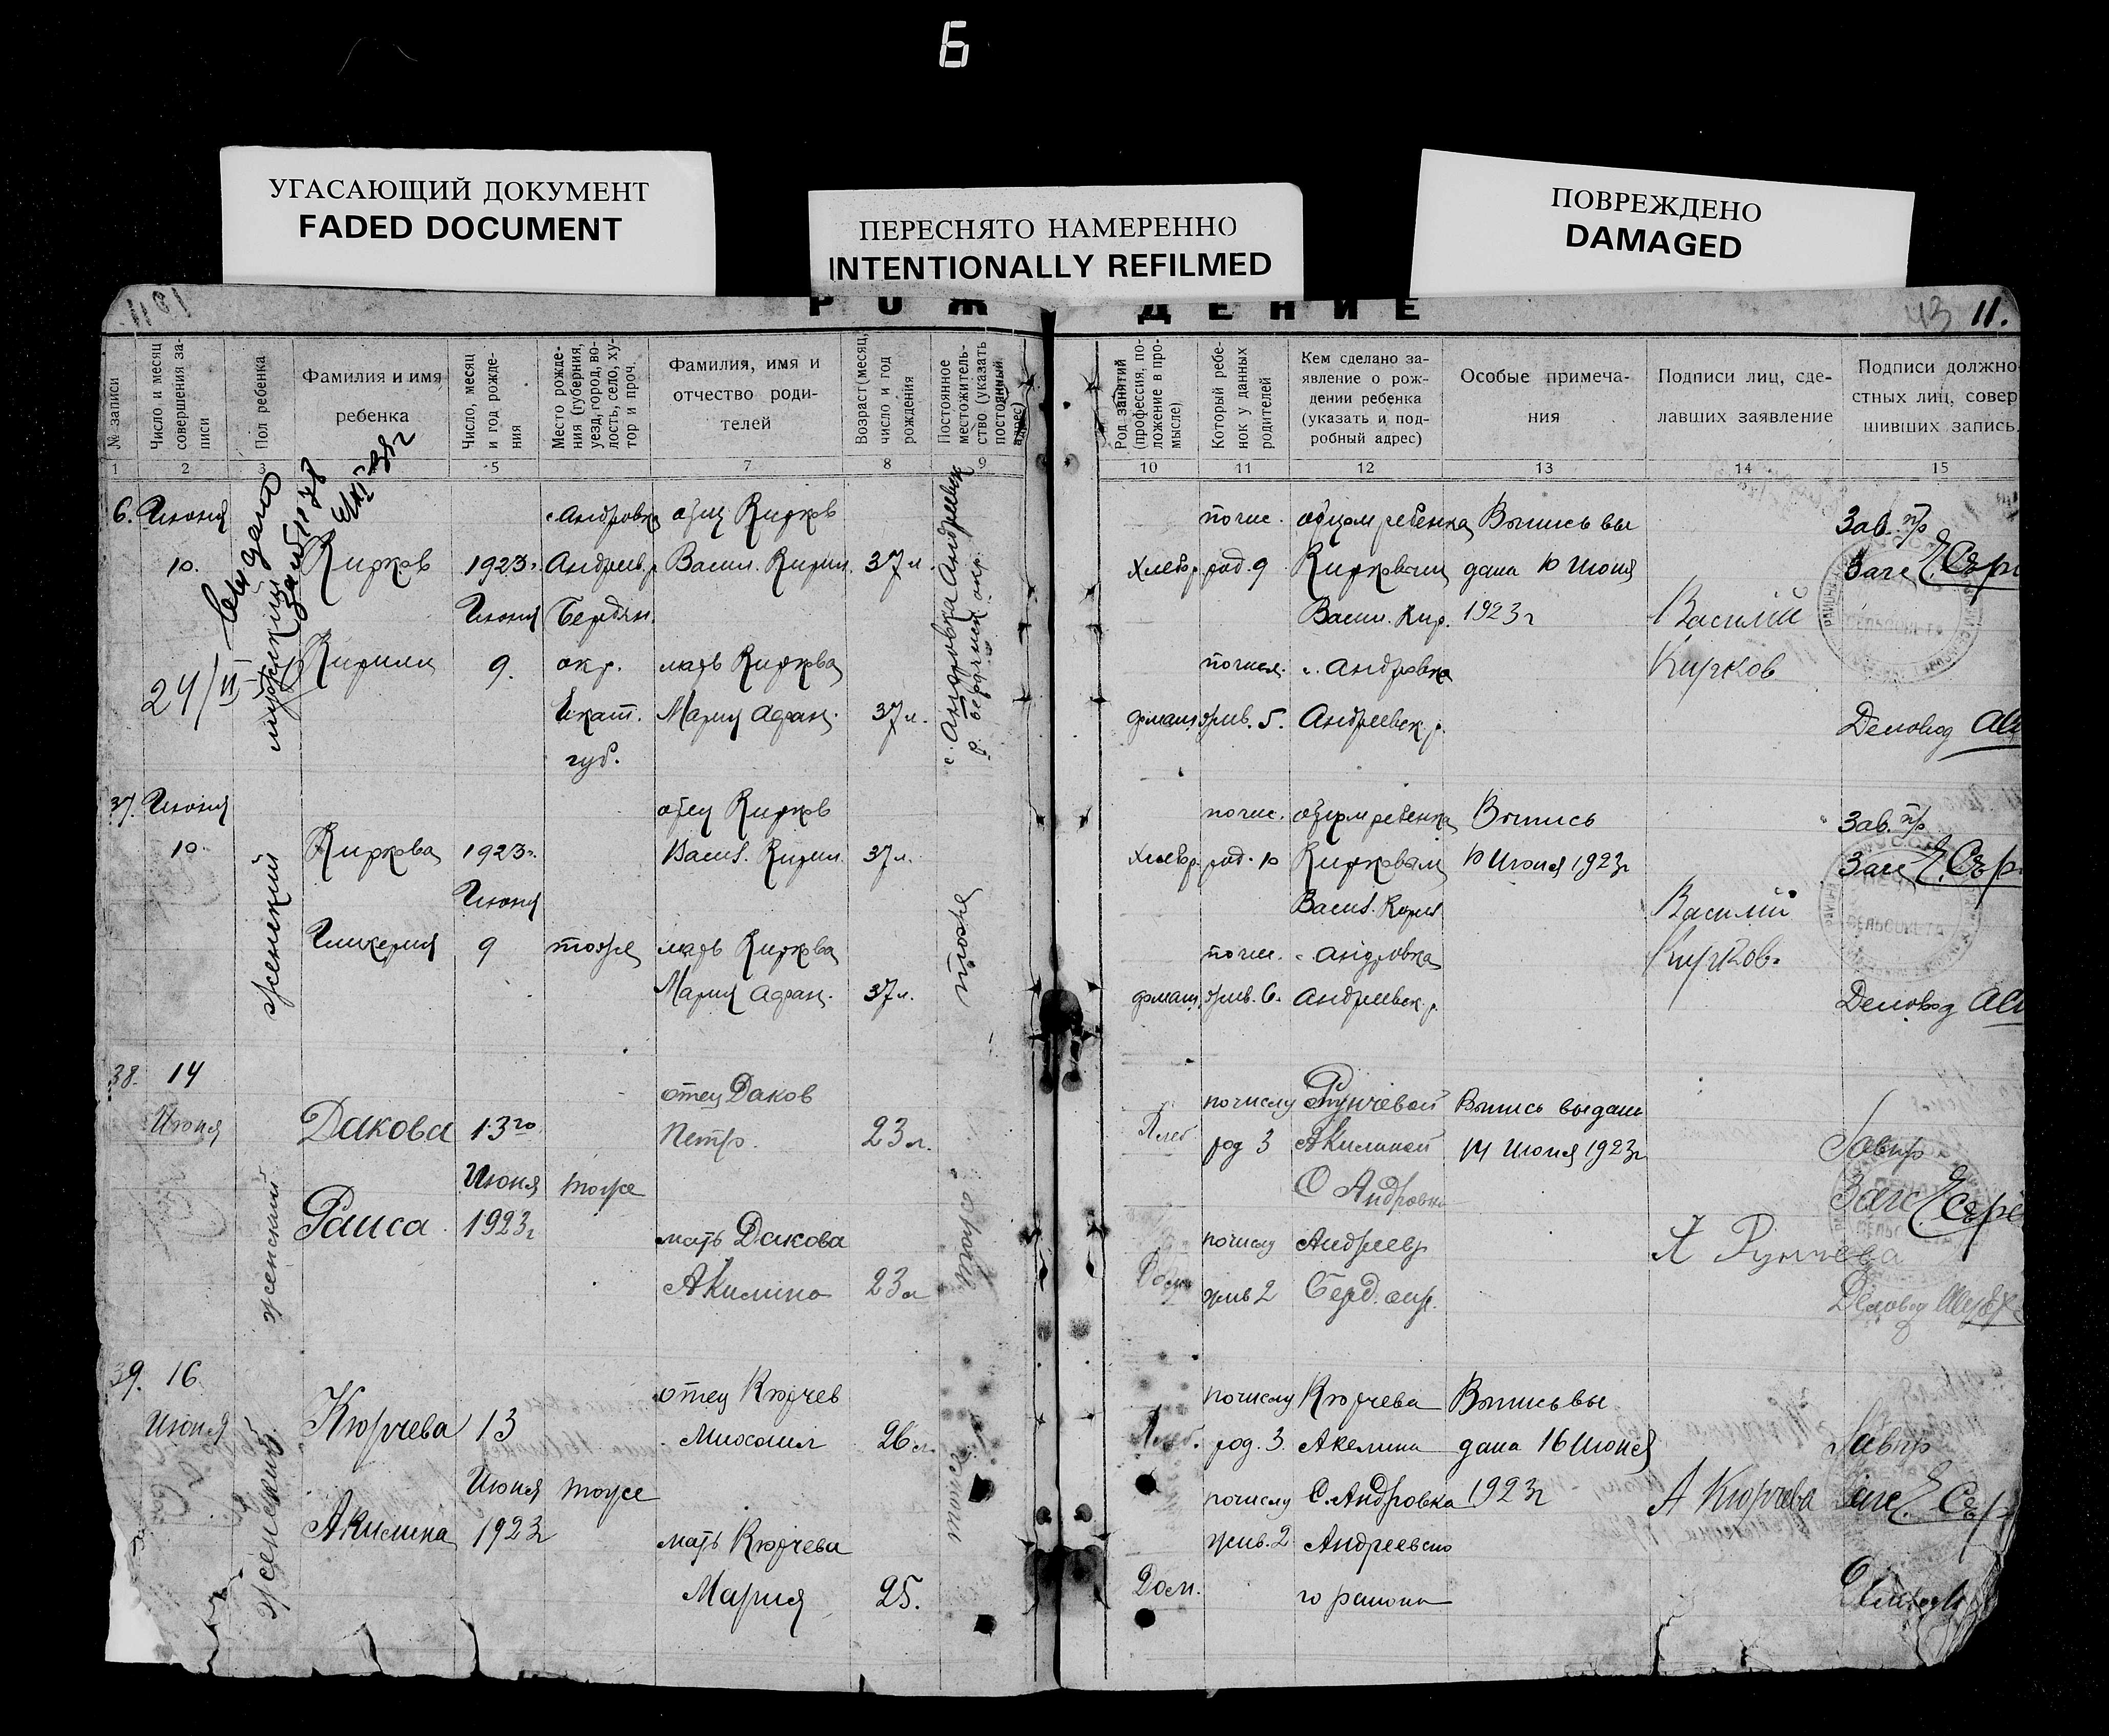 Б
УГАСАЮЩИЙ ДОКУМЕНТ
FADED DOCUMENT
ПЕРЕСНЯТО НАМЕРЕННО
INTENTIONALLY REFILMED
ПОВРЕЖДЕНО
DAMAGED
РОЖДЕНИЕ
43 11.
№ записи
Число и месяц
совершения за-
писи
Пол ребенка
Фамилия и имя
ребенка
Число, месяц
и год рожде-
ния
Место рожде-
ния (губерния,
уезд, город, во-
лость, село, ху-
тор и проч.
Фамилия, имя и
отчество роди-
телей
Возраст (месяц,
число и год
рождения
Постоянное
местожитель-
ство (указать
постоянный
адрес)
Род занятий
(профессия, по-
ложение в про-
мысле)
Который ребе-
нок у данных
родителей
Кем сделано за-
явление о рож-
дении ребенка
(указать и под-
робный адрес)
Особые примеча-
ния
Подписи лиц, сде-
лавших заявление
Подписи должно
стных лиц, совер
шивших запись.
1 2 3 5 7 8 9 10 11 12 13 14 15
6. Июня
10.
24/II
мужский
Кирков
Кирилл
1923г.
Июня
9.
с. Андровка
Андреев. р.
Бердян.
окр.
Екат.
губ.
отец Кирков
Васил. Кирил.
мать Киркова
Мария
37 л.
37 л.
с. Андровка Андреевск
р. Бердянск окр.
Хлебор.
домаш.
по чис.
род. 9
по числ.
жив. 5.
отцом ребенка
Кирковым
Васил. Кир.
с. Андровка
Андреевск. р.
Выпись вы
дана 10 Июня
1923 г
Василий
Кирков
Зав. п/р
Загс
Деловод
37. Июня
10.
женский
Киркова
Гликерия
1923г.
Июня
9
тоже
отец Кирков
Васил. Кирил.
мать Киркова
Мария
37 л.
37 л.
тоже
Хлебор.
домаш.
по чис.
род. 10
по чис.
жив. 6.
отцом ребенка
Кирковым
Васил. Кирил
с. Андровка
Андреевск. р.
Выпись
10 Июня 1923г
Василий
Кирков.
Зав. п/р
Загс
Деловод
38. 14
Июня
женский
Дакова
Раиса
13го
Июня
1923г
тоже
отец Даков
Петр.
мать Дакова
Акилина
23 л.
23 л
тоже
Хлеб
Дом
по числу
род 3
по числу
жив 2
Рунчевой
Акилиной
С Андровка
Андреев р
Берд. окр.
Выпись выдана
14 Июня 1923г
А Рунчева
Зав п/р
Загс
Деловод
39. 16
Июня
женский
Кюрчева
Акилина
13
Июня
1923г
тоже
отец Кюрчев
Михаил
мать Кюрчева
Мария
26 л.
25.
тоже
Хлеб.
Дом.
по числу
род. 3.
по числу
жив. 2
Кюрчева
Акелина
С. Андровка
Андреевско
го района
Выпись вы
дана 16 Июня
1923г
А Кюрчева
Зав п/р
Загс